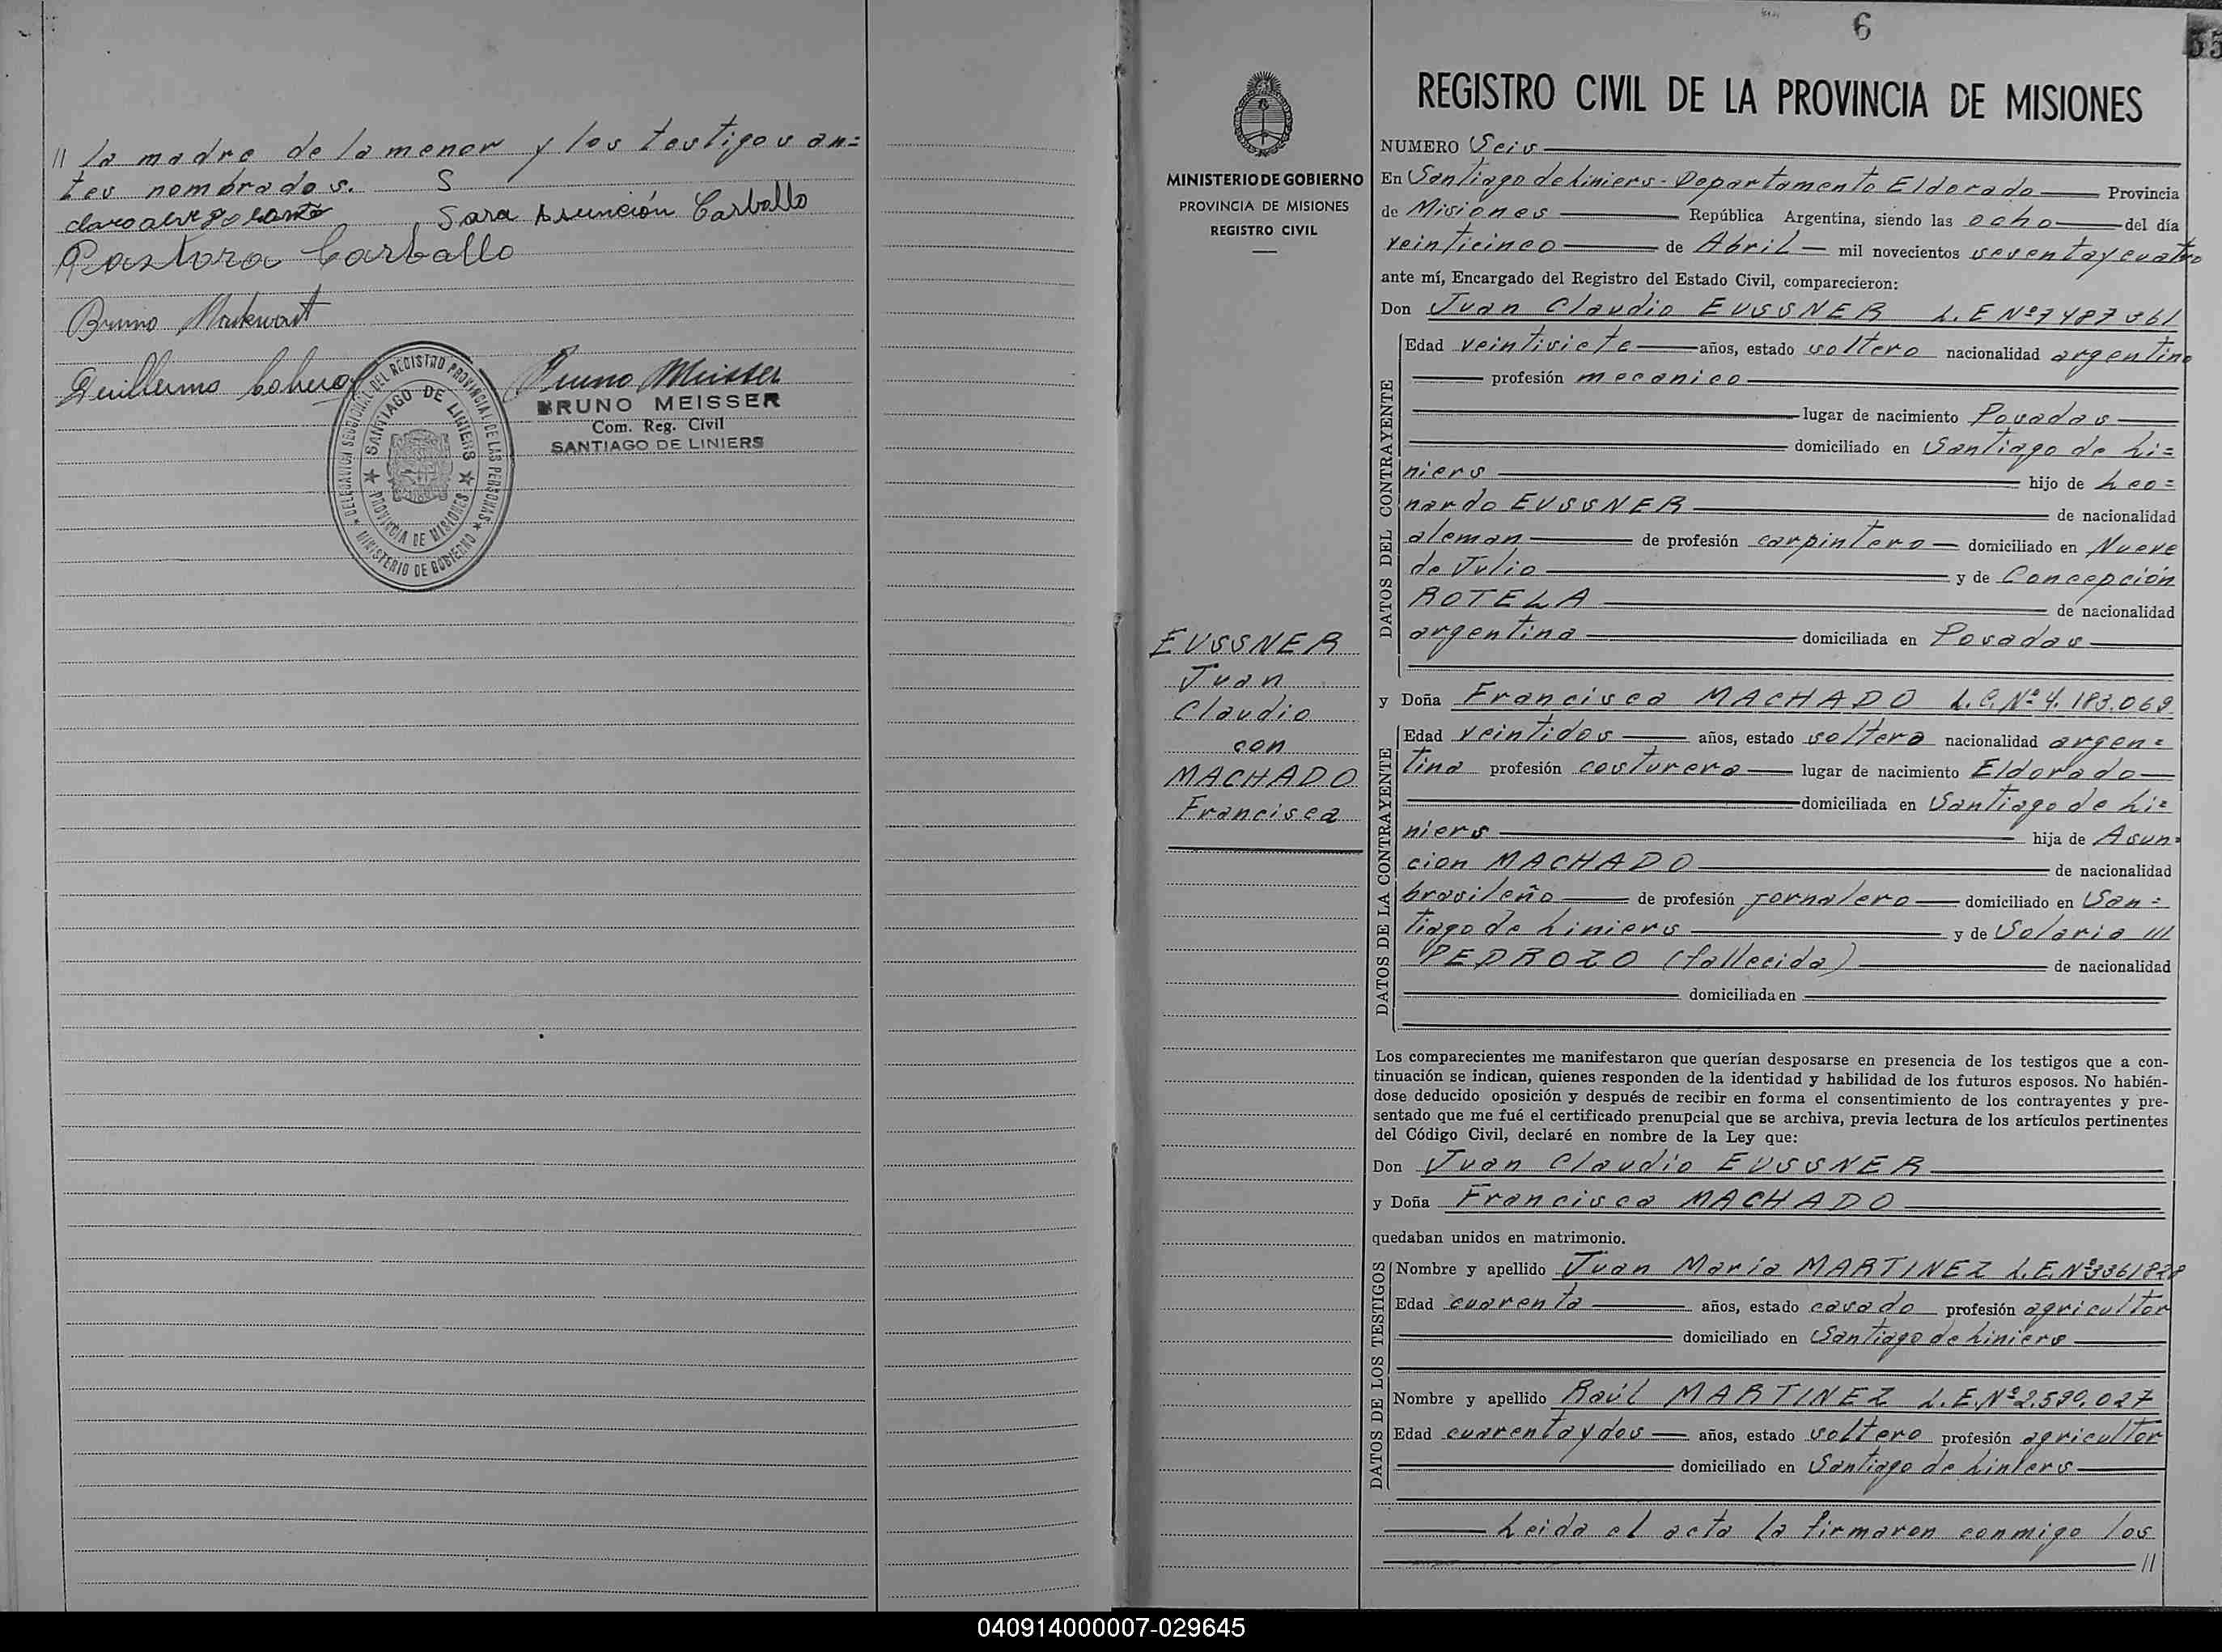 // la madre de la menor y los testigos an=
tes nombrados. S
Sara Asunción Carballo
Pastora Carballo
Bruno Markwart
Guillermo
Bruno Meisser
BRUNO MEISSER
Com. Reg. Civil
SANTIAGO DE LINIERS
DELEGACION SECCIONAL DEL REGISTRO PROVINCIAL DE LAS PERSONAS
MINISTERIO DE GOBIERNO
SANTIAGO DE LINIERS
PROVINCIA DE MISIONES
MINISTERIO DE GOBIERNO
PROVINCIA DE MISIONES
REGISTRO CIVIL
EUSSNER
Juan
Claudio
con
MACHADO
Francisca
6
55
REGISTRO CIVIL DE LA PROVINCIA DE MISIONES
NUMERO Seis
En Santiago de Liniers - Departamento Eldorado Provincia
de Misiones República Argentina, siendo las ocho del día
veinticinco de Abril mil novecientos sesenta y cuatro
ante mí, Encargado del Registro del Estado Civil, comparecieron:
Don Juan Claudio EUSSNER L. E Nº 7487561
DATOS DEL CONTRAYENTE
Edad veintisiete años, estado soltero nacionalidad argentino
profesión mecanico
lugar de nacimiento Posadas
domiciliado en Santiago de Li=
niers hijo de Leo=
nardo EUSSNER de nacionalidad
aleman de profesión carpintero domiciliado en Nueve
de Julio y de Concepción
ROTELA de nacionalidad
argentina domiciliada en Posadas
y Doña Francisca MACHADO L.C. Nº 4.183.069
DATOS DE LA CONTRAYENTE
Edad veintidos años, estado soltera nacionalidad argen=
tina profesión costurera lugar de nacimiento Eldorado
domiciliada en Santiago de Li=
niers hija de Asun=
cion MACHADO de nacionalidad
brasileño de profesión jornalero domiciliado en San=
tiago de Liniers y de Solaria ///
PEDROZO (fallecida) de nacionalidad
domiciliada en
Los comparecientes me manifestaron que querían desposarse en presencia de los testigos que a con-
tinuación se indican, quienes responden de la identidad y habilidad de los futuros esposos. No habién-
dose deducido oposición y después de recibir en forma el consentimiento de los contrayentes y pre-
sentado que me fué el certificado prenupcial que se archiva, previa lectura de los artículos pertinentes
del Código Civil, declaré en nombre de la Ley que:
Don Juan Claudio EUSSNER
y Doña Francisca MACHADO
quedaban unidos en matrimonio.
DATOS DE LOS TESTIGOS
Nombre y apellido Juan María MARTINEZ L.E.Nº3361828
Edad cuarenta años, estado casado profesión agricultor
domiciliado en Santiago de Liniers
Nombre y apellido Raúl MARTINEZ L.E.Nº2.590.027
Edad cuarenta y dos años, estado soltero profesión agricultor
domiciliado en Santiago de Liniers
Leida el acta la firmaron conmigo los
//
040914000007-029645